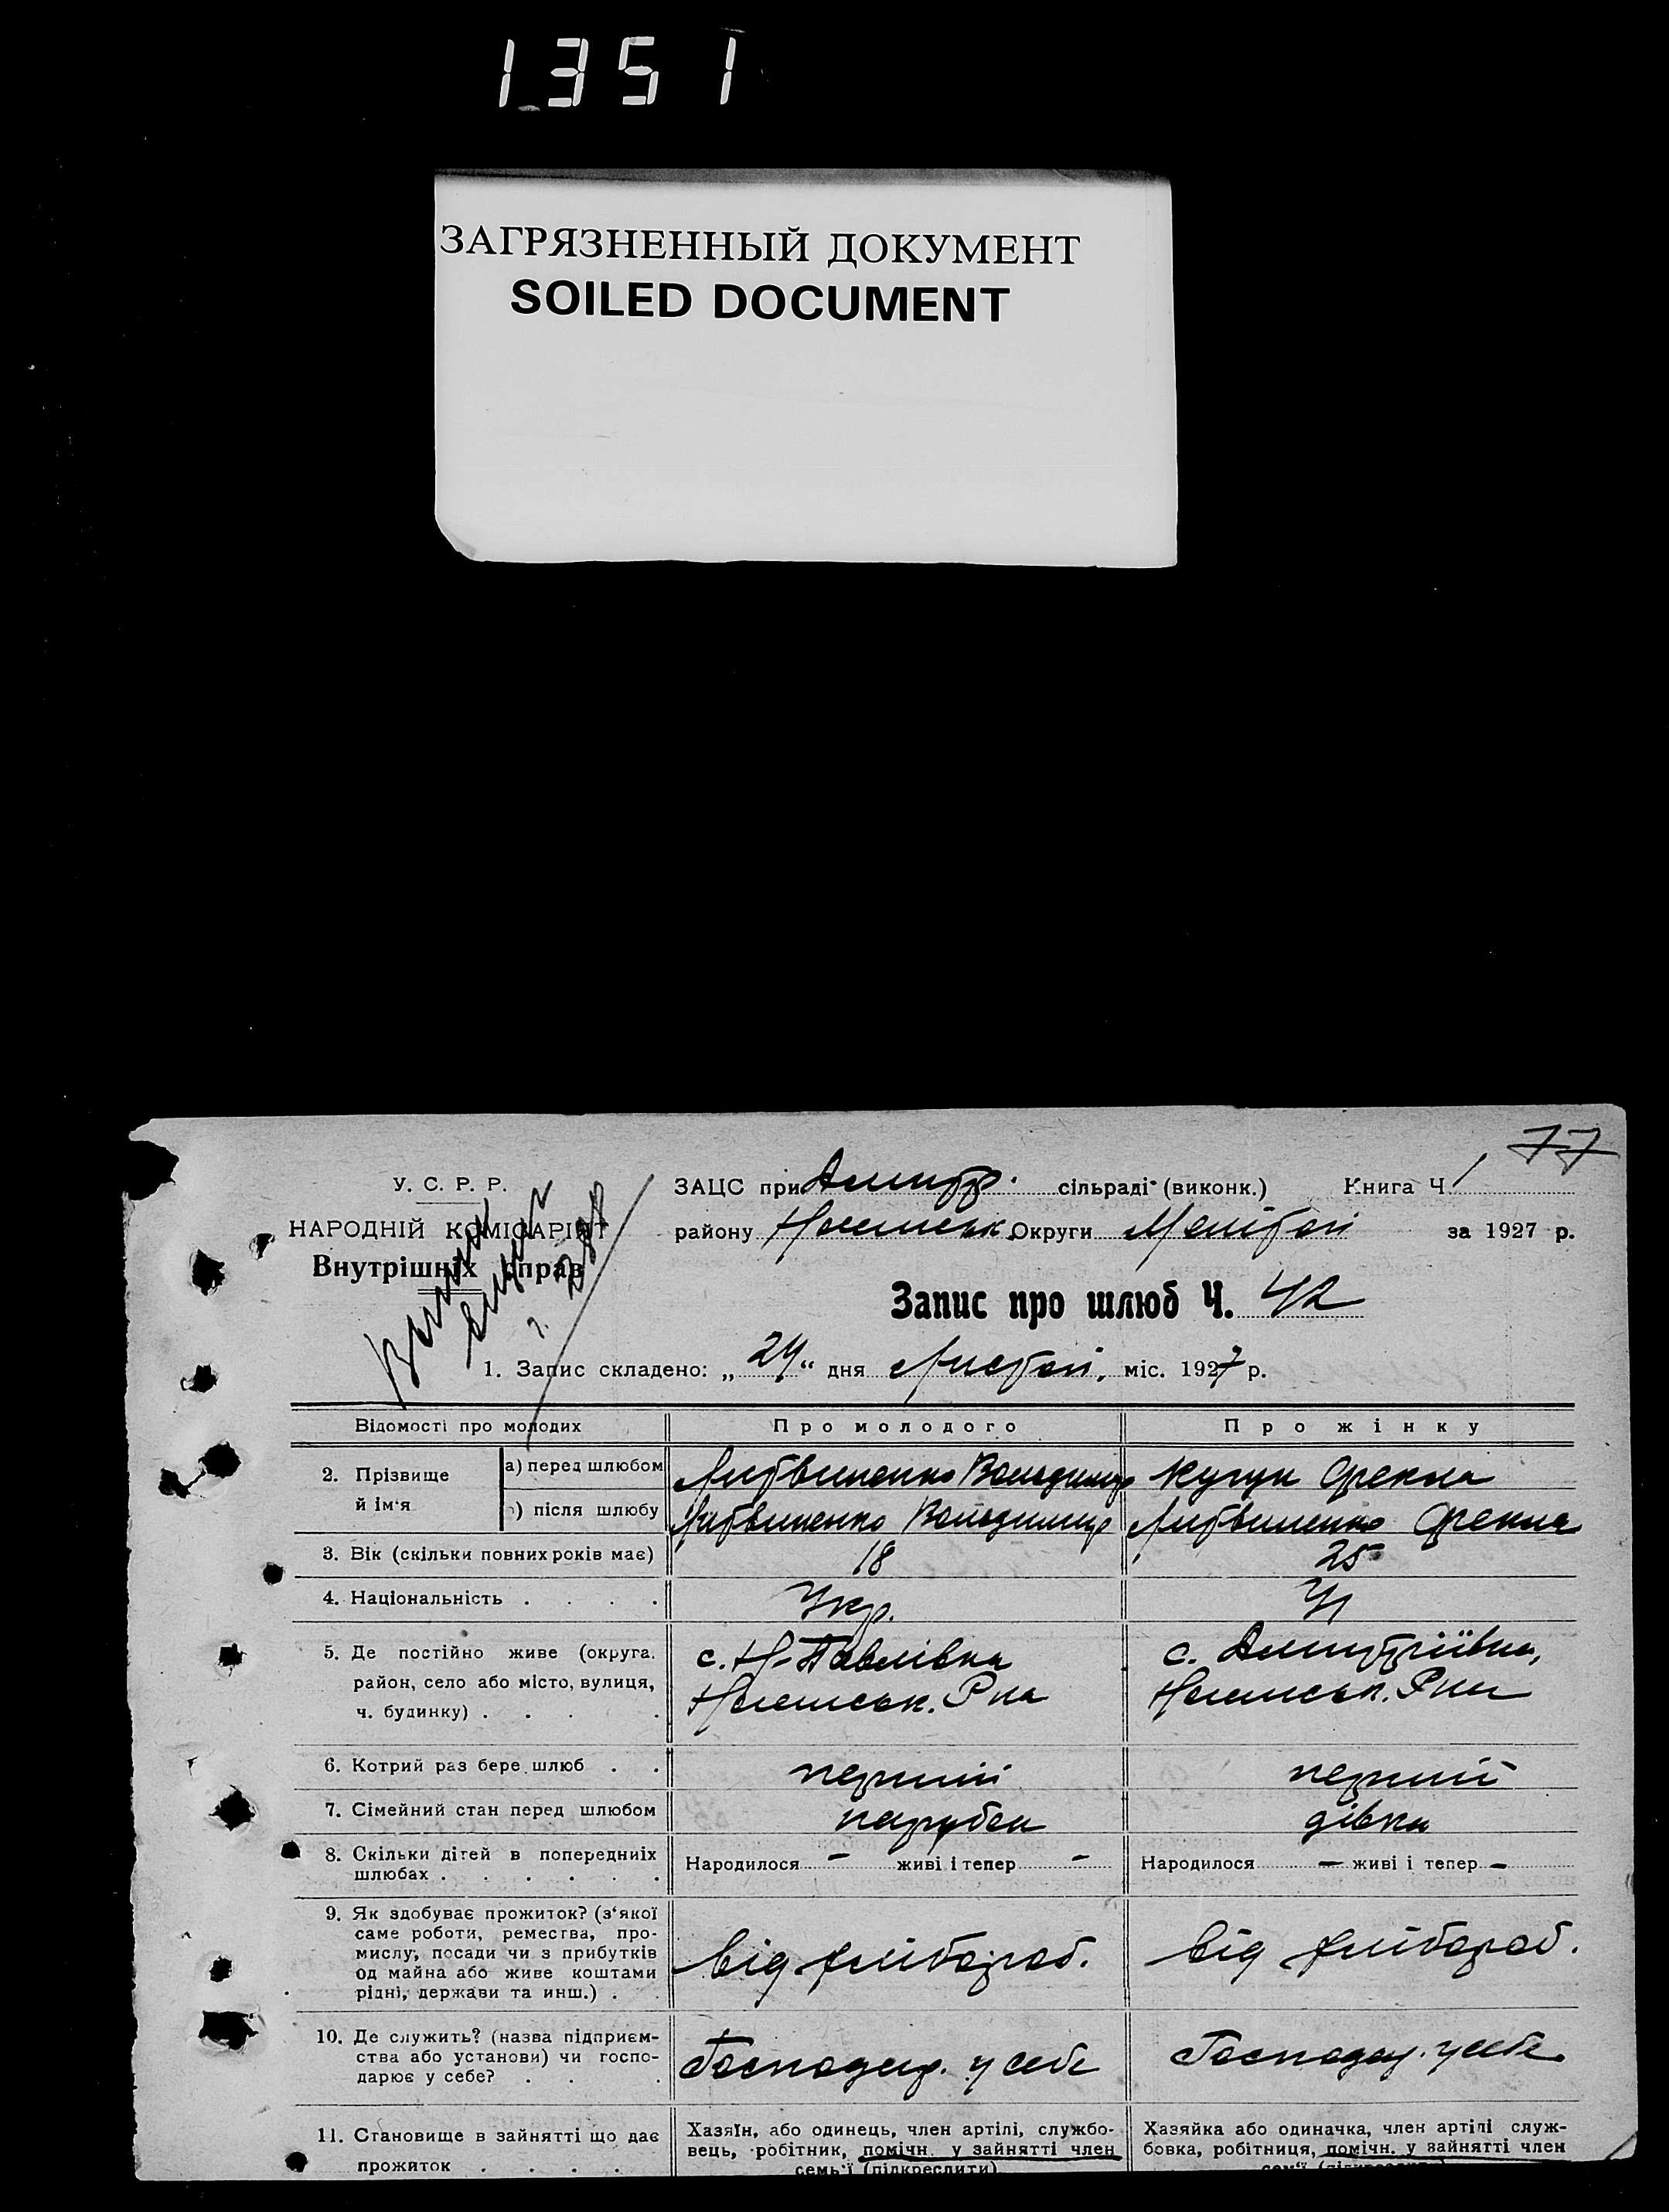 1351
ЗАГРЯЗНЕННЫЙ ДОКУМЕНТ
SOILED DOCUMENT
77
У. С. Р. Р.
НАРОДНІЙ КОМІСАРІЯТ
Внутрішніх справ
ЗАЦС при Дмитр. сільраді (виконк.) Книга Ч. 1
району Округи Меліtоп за 1927 р.
Запис про шлюб Ч. 42
1. Запис складено: „24“ дня Листоп. міс. 1927 р.
Відомості про молодих Про молодого Про жінку
2. Прізвище й ім‘я
а) перед шлюбом Литвиненко Володимир Кугук Фекла
б) після шлюбу Литвиненко Володимир Литвиненко Фекла
3. Вік (скільки повних років має) 18 25
4. Національність . . . . Укр. Ук
5. Де постійно живе (округа, с. Н-Павлівка с. Дмитріївка,
район, село або місто, вулиця, Р-на Р-ну
ч. будинку) . . . .
6. Котрий раз бере шлюб . . перший перший
7. Сімейний стан перед шлюбом парубок дівка
8. Скільки дітей в попередніх Народилося - живі і тепер - Народилося - живі і тепер -
шлюбах . . . . . .
9. Як здобуває прожиток? (з‘якої
саме роботи, ремества, про-
мислу, посади чи з прибутків від хлібороб. від хлібороб.
од майна або живе коштами
рідні, держави та инш.) .
10. Де служить? (назва підприєм-
ства або установи) чи госпо- Господар. у себе Господар. у себе
дарює у себе? . . .
11. Становище в зайнятті що дає Хазяїн, або одинець, член артілі, службо- Хазяйка або одиначка, член артілі служ-
прожиток . . . . вець, робітник, помічн. у зайнятті член бовка, робітниця, помічн. у зайнятті член
семь‘ї (підкреслити) сем‘ї (підкреслити)